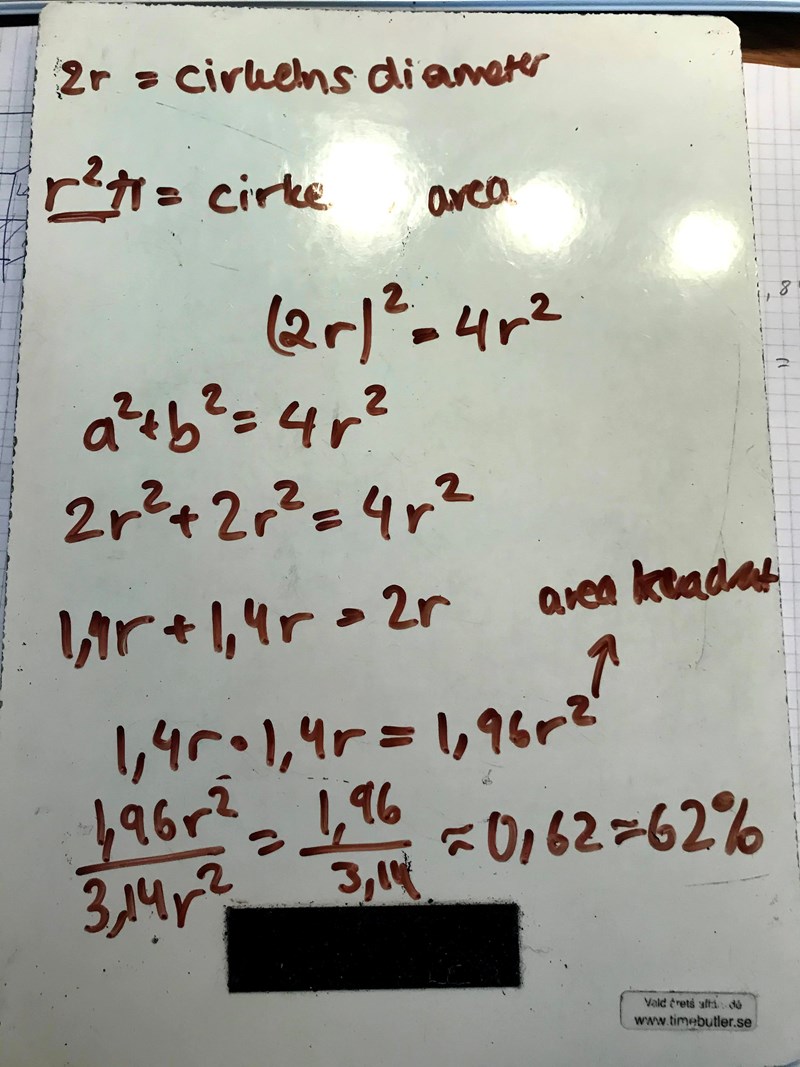 2r = cirkelns diameter
r²π = cirke area
(2r)² = 4r²
a²+b² = 4r²
2r²+2r² = 4r²
1,4r + 1,4r = 2r
area kvadrat
1,4r · 1,4r = 1,96r²
1,96r² / 3,14r² = 1,96 / 3,14 ≈ 0,62 = 62%
www.timebutler.se